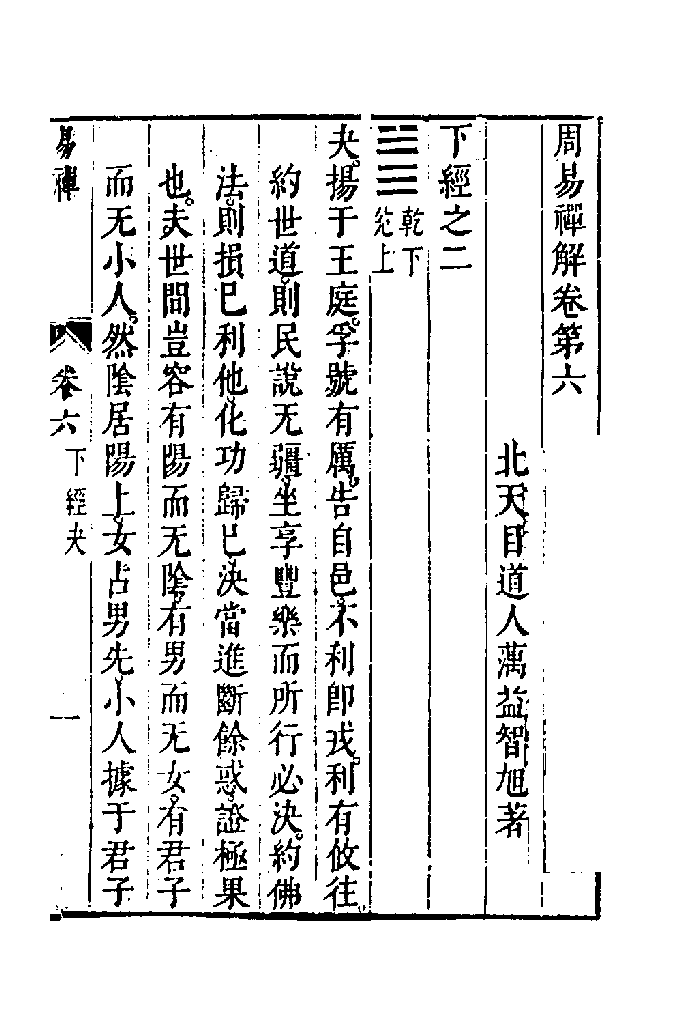 周易禪解卷第六
北天目道人蕅益智旭著
下經之二
䷪乾下
兌上
夬。揚于王庭。孚號有厲。告自邑。不利即戎。利有攸往。
約世道。則民說无疆。坐享豐樂。而所行必決。約佛
法。則損已利他。化功歸已。決當進斷餘惑。證極果
也。夫世間豈容有陽而无陰。有男而无女。有君子
而无小人。然陰居陽上。女占男先。小人據于君子
易禪 卷六 下經夬 一